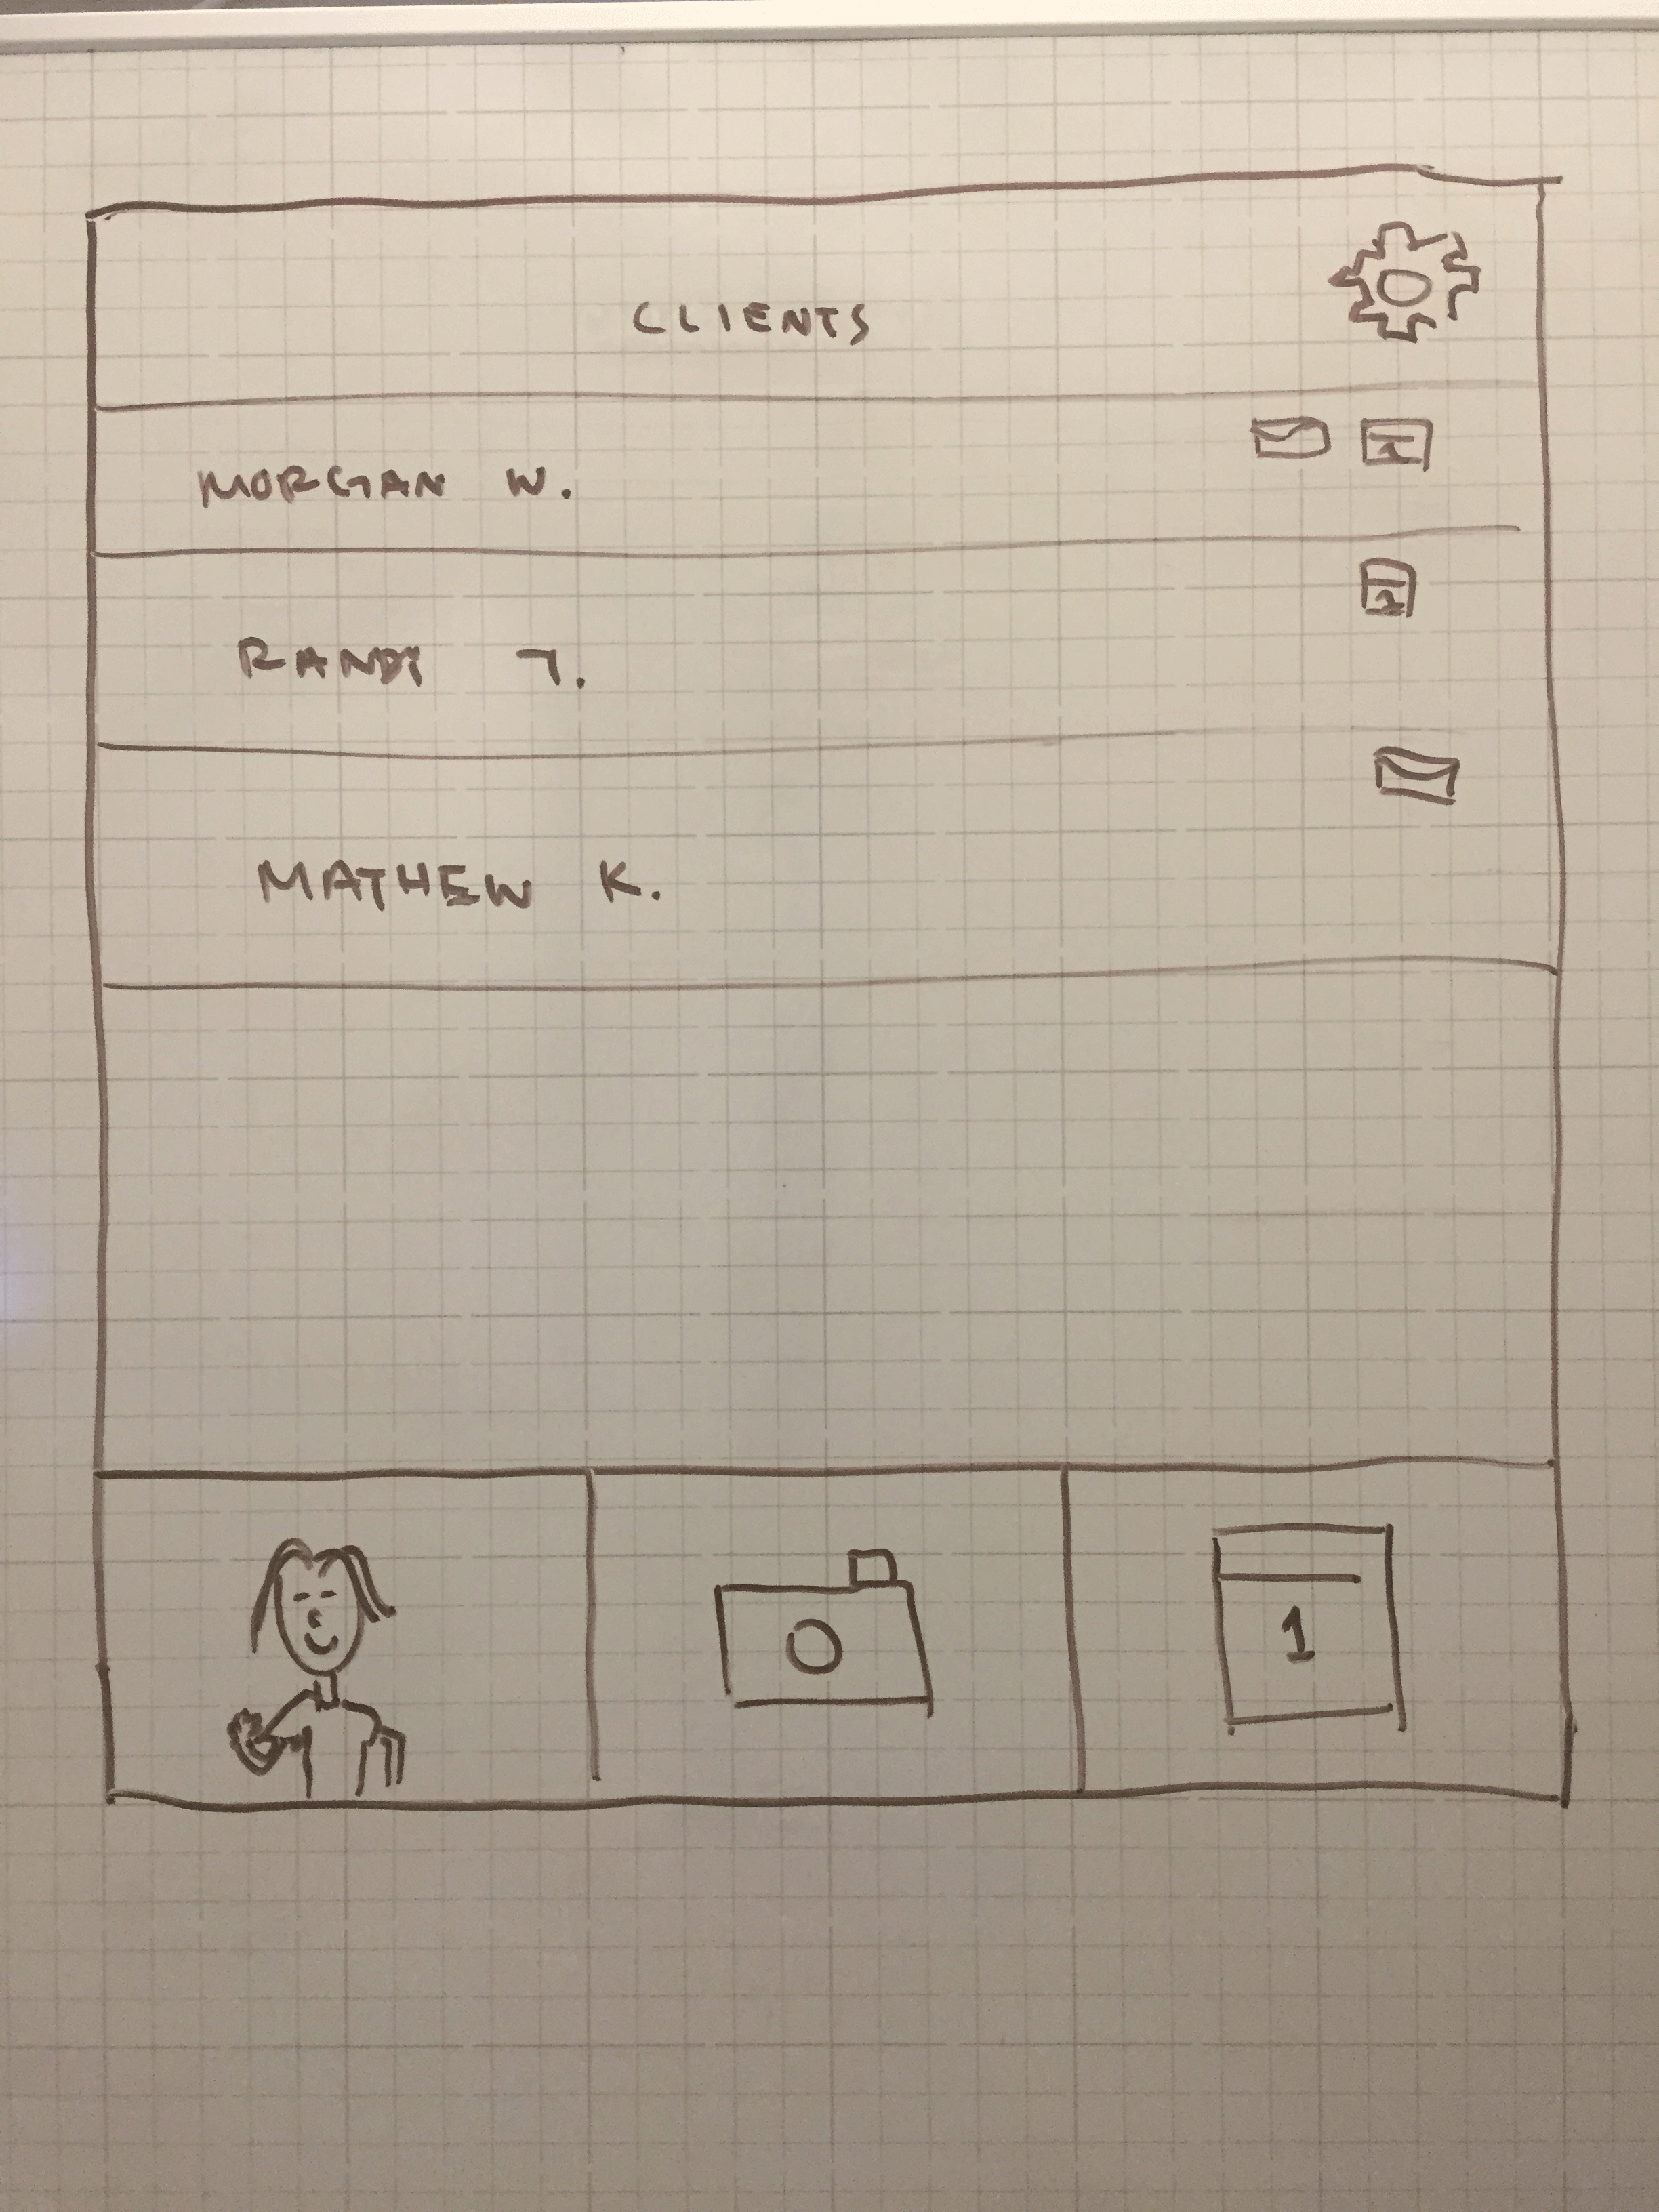 CLIENTS
MORGAN W.
RANDY T.
MATHEW K.
1